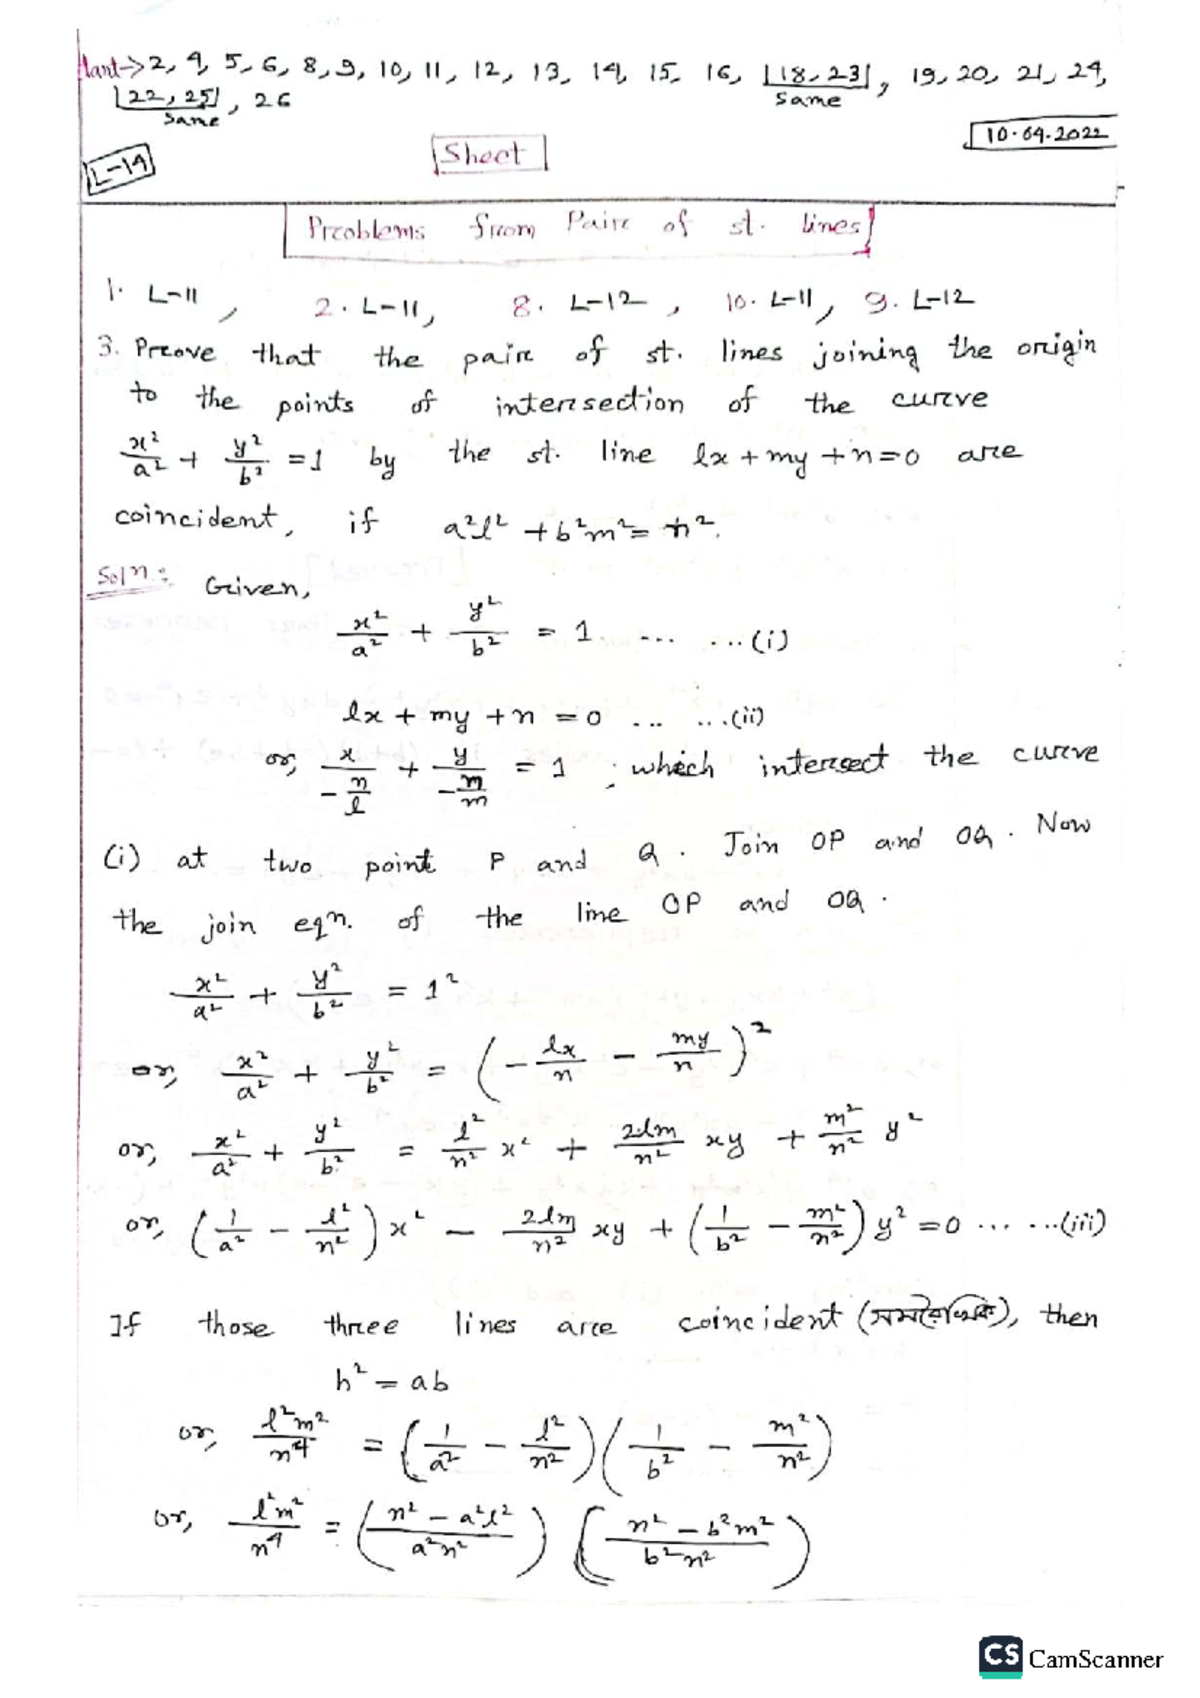 tant→ 2, 4, 5, 6, 8, 9, 10, 11, 12, 13, 14, 15, 16, |18, 23|, 19, 20, 21, 24,
Same
|22, 25|, 26
Same
10.04.2022
L-14
Sheet
Preoblems from Paire of st. lines
1. L-11, 2. L-11, 8. L-12, 10. L-11, 9. L-12
3. Preove that the paire of st. lines joining the origin
to the points of interesection of the cureve
x²/a² + y²/b² = 1 by the st. line lx + my + n = 0 are
coincident, if a²l² + b²m² = n².
Solⁿ: Given,
x²/a² + y²/b² = 1 ... ...(i)
lx + my + n = 0 ... ...(ii)
or, x/(-n/l) + y/(-n/m) = 1, which intersect the cureve
(i) at two point P and Q. Join OP and OQ. Now
the join eqn. of the line OP and OQ.
x²/a² + y²/b² = 1²
or, x²/a² + y²/b² = (-lx/n - my/n)²
or, x²/a² + y²/b² = l²/n² x² + 2lm/n² xy + m²/n² y²
or, (1/a² - l²/n²) x² - 2lm/n² xy + (1/b² - m²/n²) y² = 0 ... ...(iii)
If those three lines are coincident (সমরৈখিক), then
h² = ab
or, l²m²/n⁴ = (1/a² - l²/n²)(1/b² - m²/n²)
or, l²m²/n⁴ = ((n² - a²l²)/a²n²) ((n² - b²m²)/b²n²)
CS CamScanner